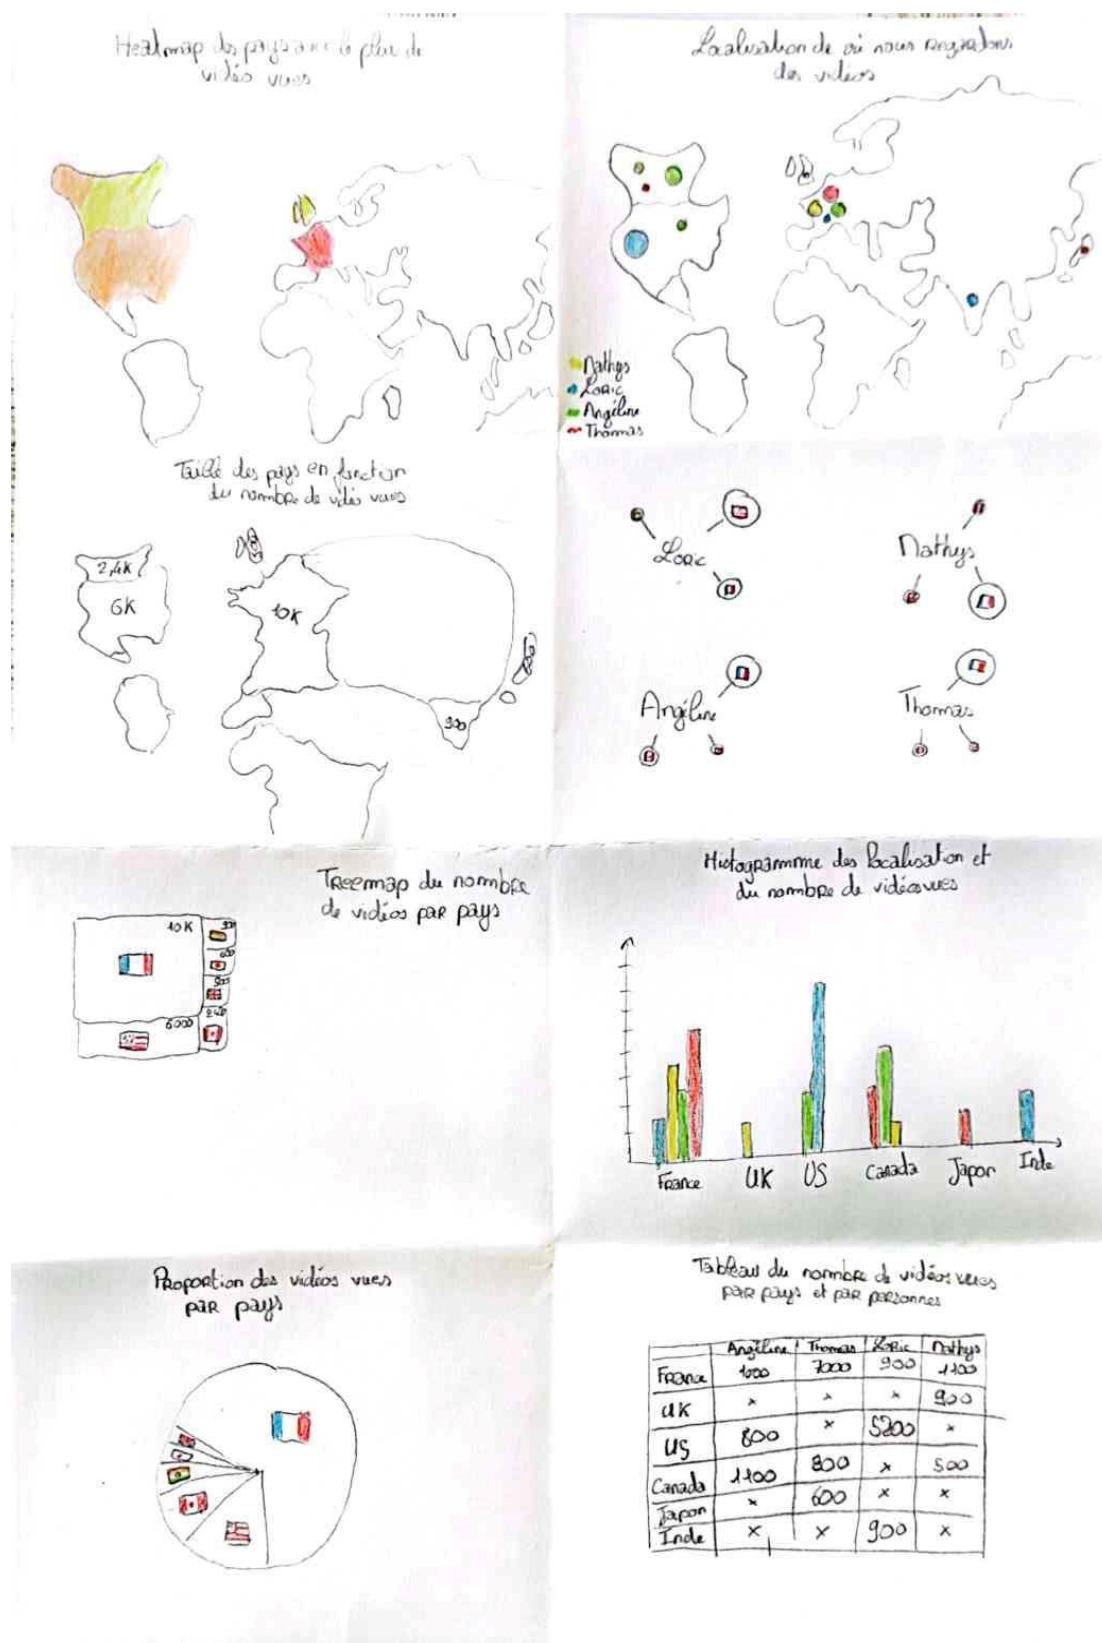 Heatmap des pays avec le plus de
vidéo vues
Localisation de où nous regardons
des vidéos
Mathys
Loric
Angéline
Thomas
Taille des pays en fonction
du nombre de vidéo vues
2,4K
6K
10K
900
Loric
Mathys
Angéline
Thomas
Treemap du nombre
de vidéos par pays
10K
900
600
900
6000
2400
Histogramme des localisation et
du nombre de vidéos vues
France
UK
US
Canada
Japon
Inde
Proportion des vidéos vues
par pays
Tableau du nombre de vidéos vues
par pays et par personnes
Angéline Thomas Loric Mathys
France 1000 7000 900 1100
UK x x x 900
US 800 x 5200 x
Canada 1100 800 x 500
Japon x 600 x x
Inde x x 900 x